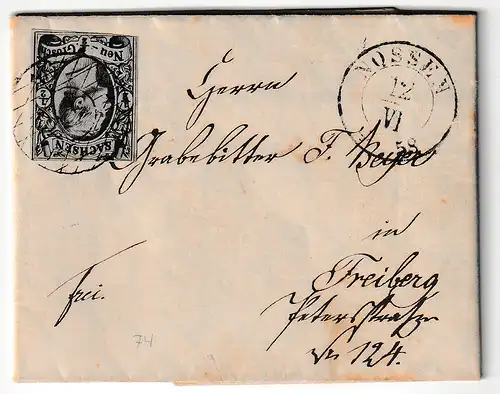 Neu-Grosch.
SACHSEN
NOSSEN
12
VI
58
Herrn
Grabebitter F. Beyer
in
Freiberg
Petersstraße
No 124.
frei.
74